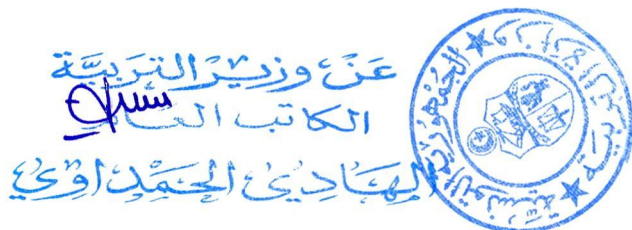 عن وزير التربية
الكاتب العام
الهادي الحمداوي
الجمهورية التونسية